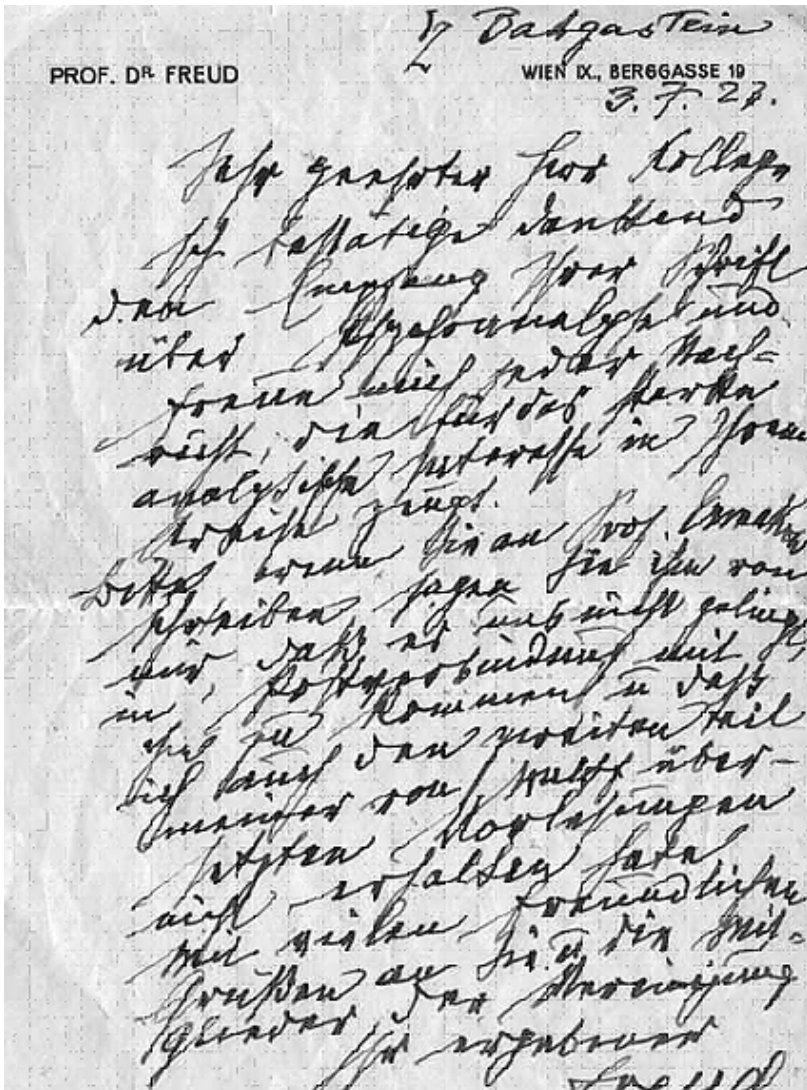 Badgastein
PROF. DR. FREUD
WIEN IX., BERGGASSE 19
3. 7. 22.
Sehr geehrter Herr Kollege
Ich bestätige dankend
den Empfang Ihrer Schrift
über Psychoanalyse und
freue mich jeder Nach-
richt, die für das starke
analytische Interesse in Ihrem
Kreise zeugt.
Bitte wenn Sie an Prof. Ermakow
schreiben, sagen Sie ihm von
mir, daß es uns nicht gelingt,
in Postverbindung mit
zu kommen u daß
ich auch den zweiten Teil
meiner von Wulff über-
setzten Vorlesungen
nicht erhalten habe
Mit vielen freundlichen
Grüßen an Sie u die Mit-
glieder der Vereinigung
Ihr ergebener
Freud